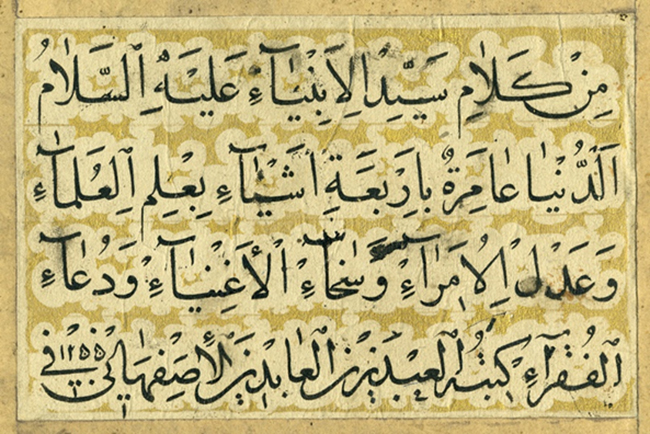 مِنْ كَلَامِ سَيِّدِ الْاَنْبِيَاءِ عَلَيْهِ السَّلَامُ
اَلدُّنْيَا عَامِرَةٌ بِاَرْبَعَةِ اَشْيَاءِ بِعِلْمِ الْعُلَمَاءِ
وَعَدْلِ الْاُمَرَاءِ وَسَخَاءِ الْاَغْنِيَاءِ وَدُعَاءِ
الْفُقَرَاءِ كَتَبَهُ الْعَبْد زين العابدين الاصفهاني في ١٢٥٥